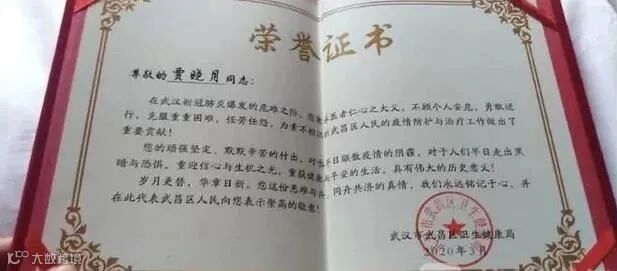 荣誉证书
尊敬的贾晓月同志：
在武汉新冠肺炎爆发的危难之际，您 医者仁心之大义，不顾个人安危，勇敢逆
行，克服重重困难，任劳任怨，为素不相 武昌区人民的疫情防护与治疗工作做出了
重要贡献！
您的顽强坚定、默默辛苦的付出，对 日驱散疫情的阴霾，对于人们早日走出黑
暗与恐惧，重迎信心与生机之光，重获健康 平安的生活，具有伟大的历史意义！
岁月更替，华章日新。您这份患难与 同舟共济的真情，我们永远铭记于心，并
在此代表武昌区人民向您表示崇高的敬意！
武汉市武昌区卫生健康局
2020年3月
大数跨境